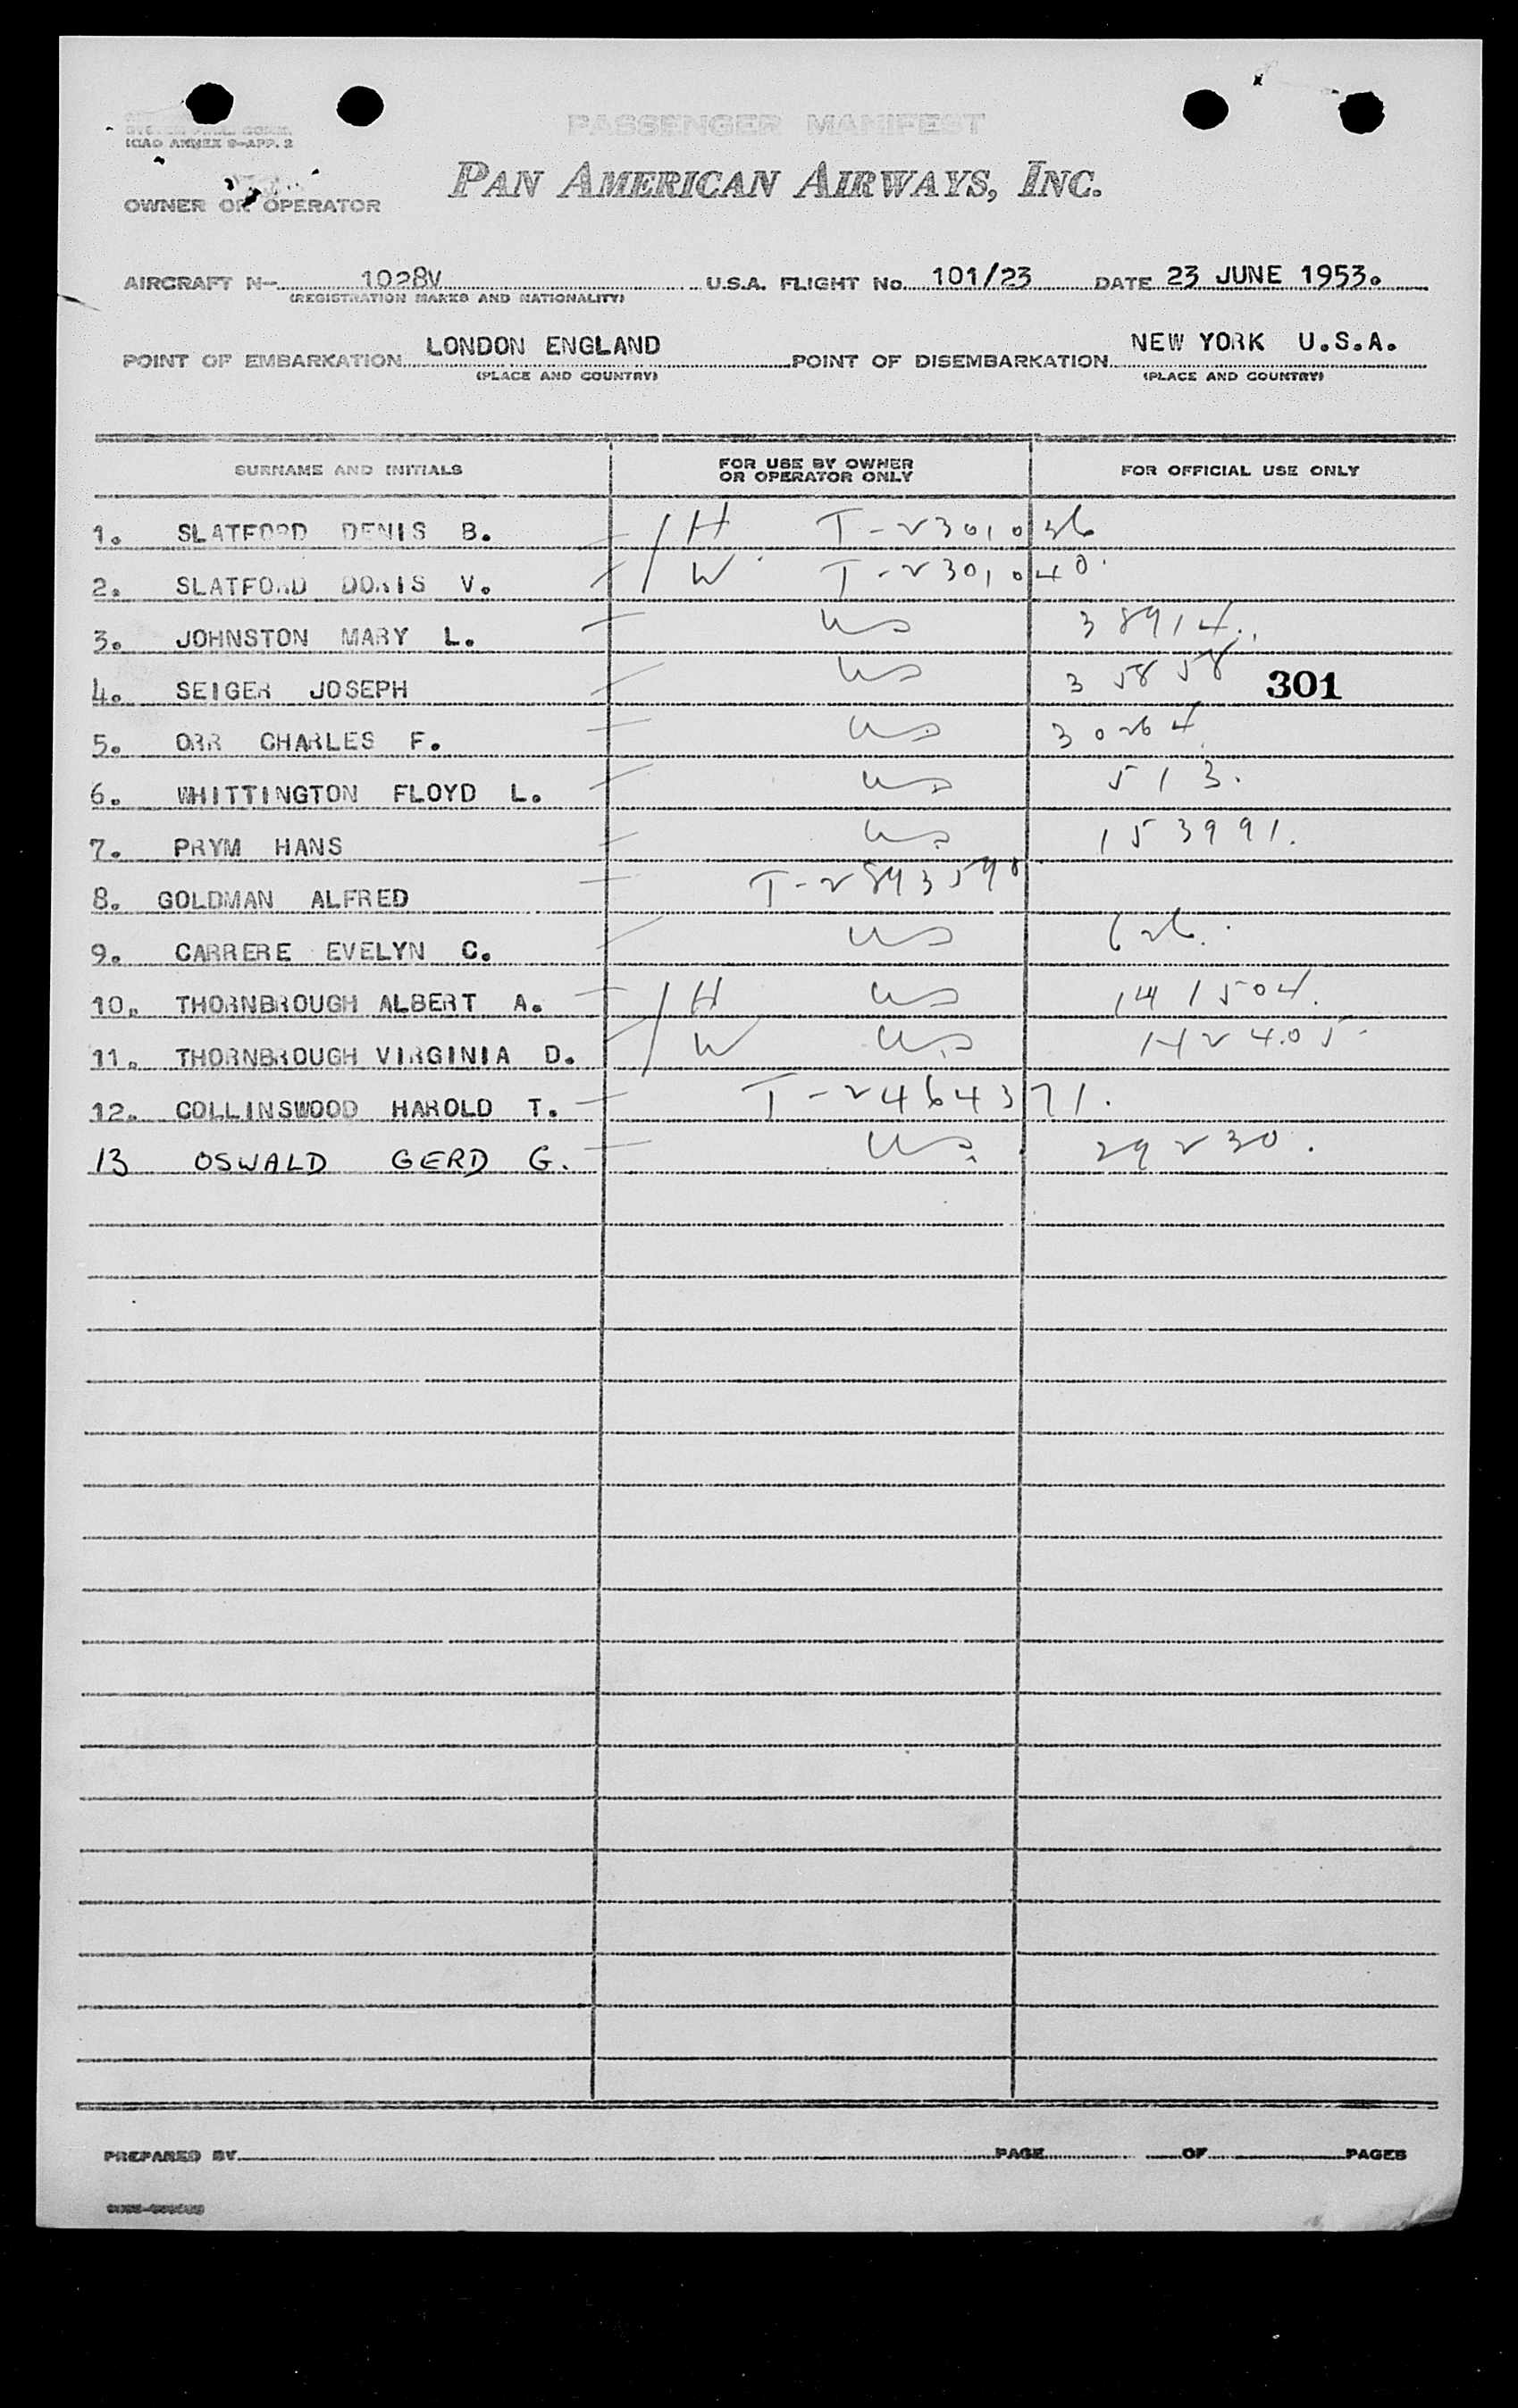 ICAO ANNEX 9-APP. 2
PASSENGER MANIFEST
PAN AMERICAN AIRWAYS, INC.
OWNER OR OPERATOR
AIRCRAFT N- 1028V U.S.A. FLIGHT No. 101/23 DATE 23 JUNE 1953.
(REGISTRATION MARKS AND NATIONALITY)
POINT OF EMBARKATION LONDON ENGLAND POINT OF DISEMBARKATION NEW YORK U.S.A.
(PLACE AND COUNTRY) (PLACE AND COUNTRY)
SURNAME AND INITIALS FOR USE BY OWNER OR OPERATOR ONLY FOR OFFICIAL USE ONLY
1. SLATFORD DENIS B. H T-2301036
2. SLATFORD DORIS V. W T-2301040
3. JOHNSTON MARY L. US 38914.
4. SEIGER JOSEPH US 35858 301
5. ORR CHARLES F. US 30264
6. WHITTINGTON FLOYD L. US 513.
7. PRYM HANS US 153991.
8. GOLDMAN ALFRED T-2893598
9. CARRERE EVELYN C. US 626.
10. THORNBROUGH ALBERT A. H US 141504.
11. THORNBROUGH VIRGINIA D. W US
12. COLLINSWOOD HAROLD T. T-2464371.
13 OSWALD GERD G. US 29230.
PREPARED BY PAGE OF PAGES